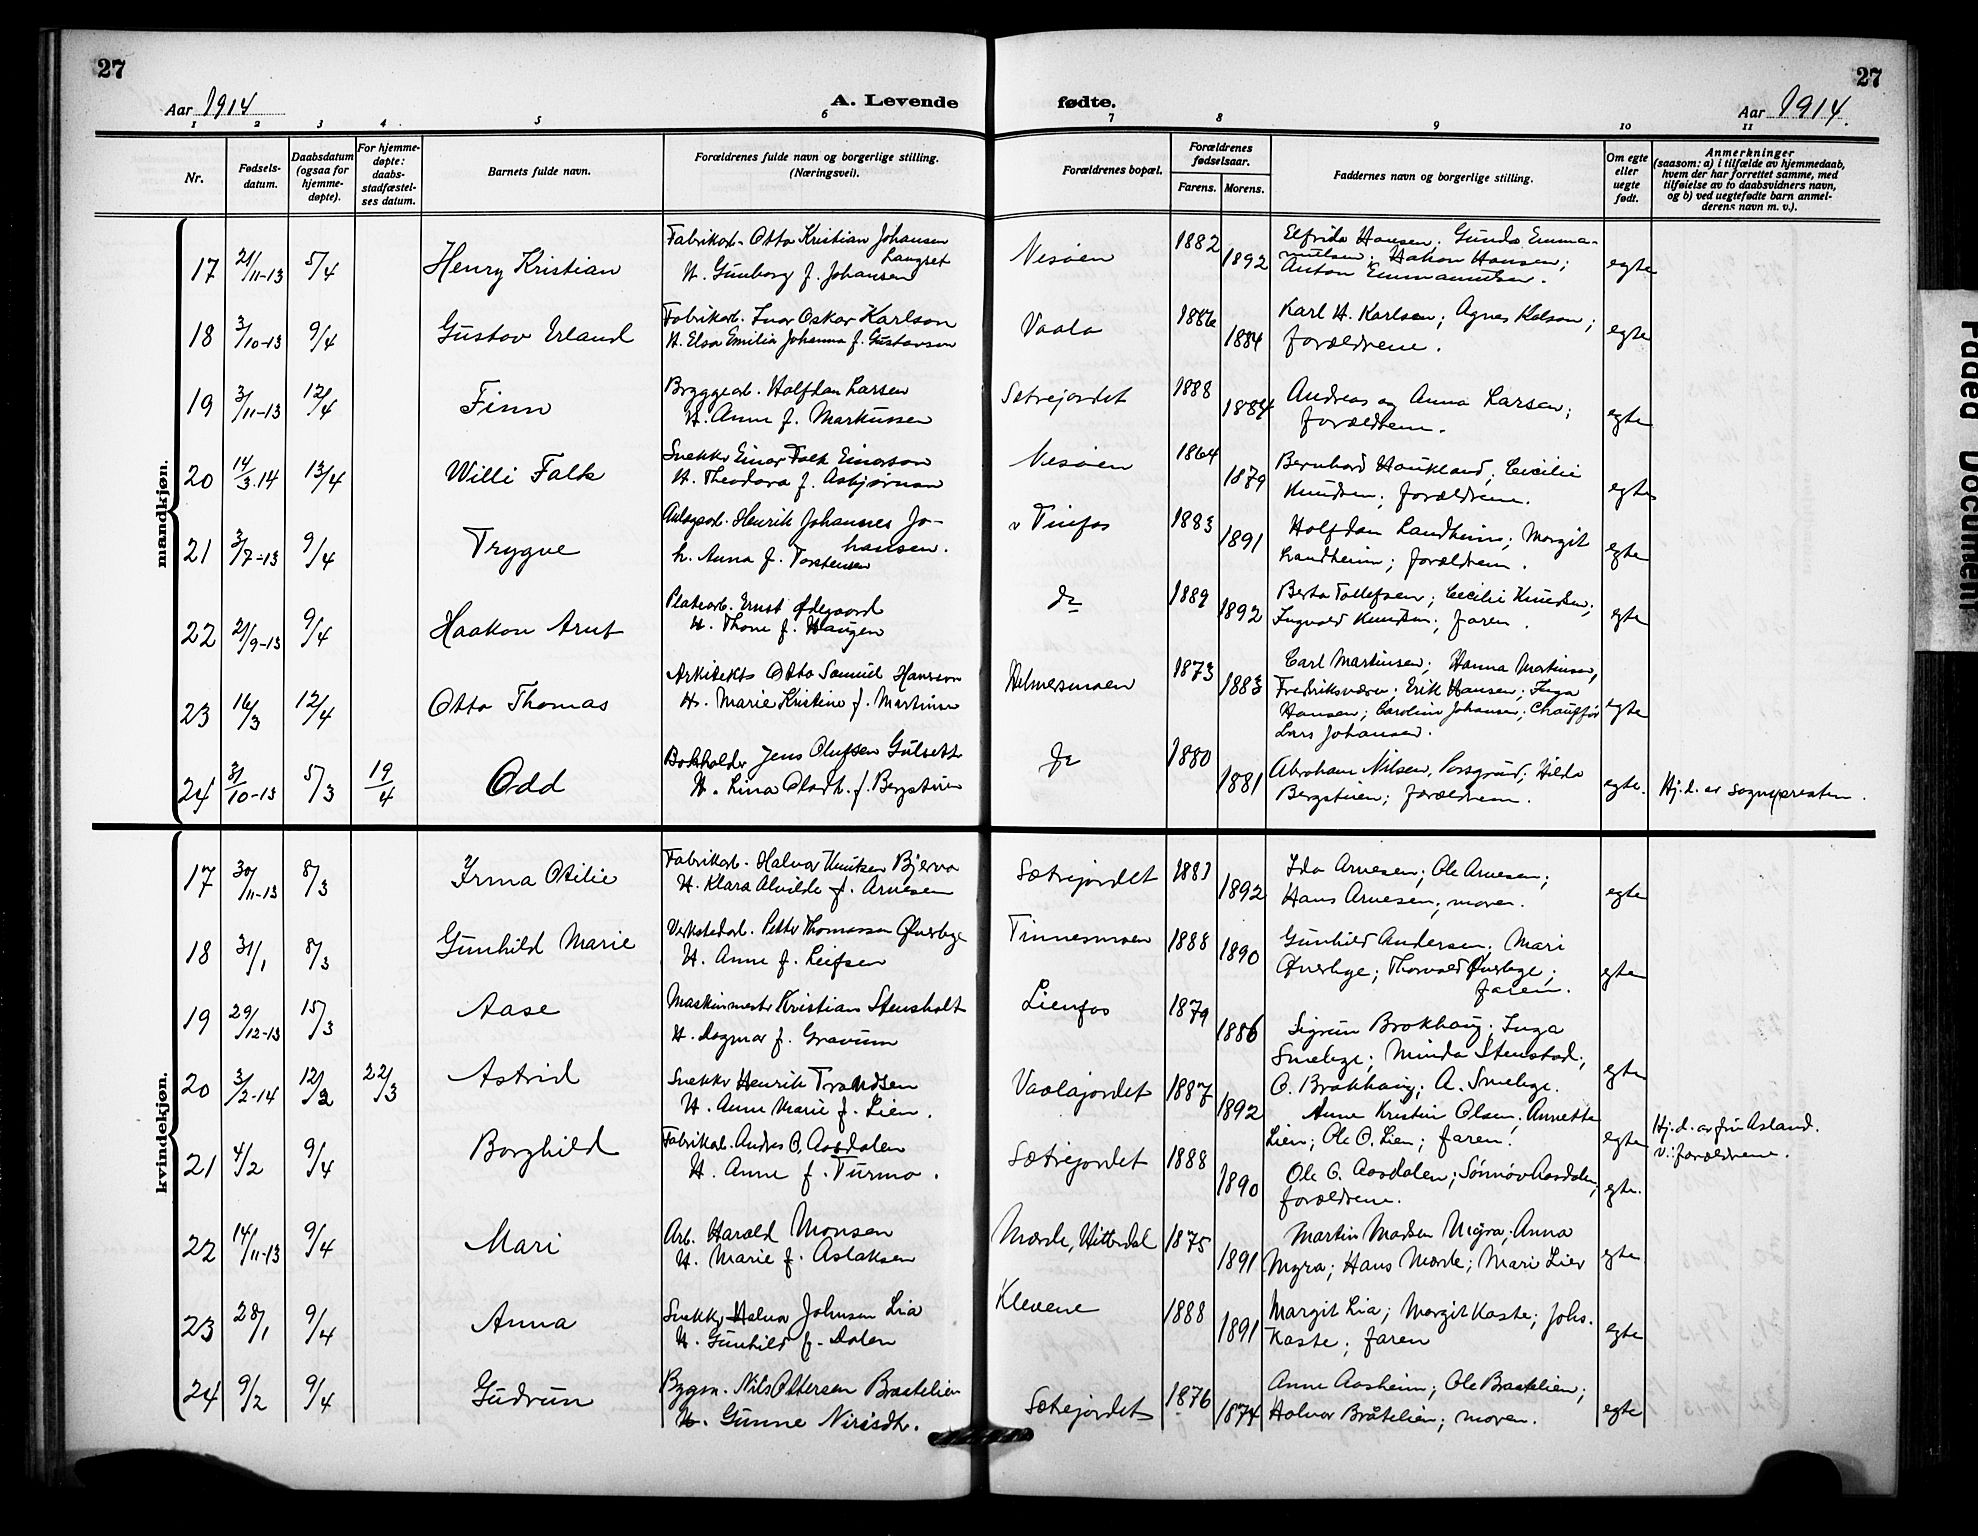 27
27
Aar 1914
A. Levende
fødte.
Aar 1914.
1 2 3 4 5 6 7 8 9 10 11
Nr.
Fødsels-
datum.
Daabsdatum
(ogsaa for
hjemme-
døpte).
For hjemme-
døpte:
daabs-
stadfæstel-
ses datum.
Barnets fulde navn.
Forældrenes fulde navn og borgerlige stilling.
(Næringsvei).
Forældrenes bopæl.
Forældrenes
fødselsaar.
Farens. Morens.
Faddernes navn og borgerlige stilling.
Om egte
eller
uegte
født.
Anmerkninger
(saasom: a) i tilfælde av hjemmedaab,
hvem der har forrettet samme, med
tilføielse av to daabsvidners navn,
og b) ved uegtefødte barn anmel-
derens navn m. v.).
mandkjøn.
17 21/11-13 5/4 Henry Kristian
Fabrikarb. Otto Kristian Johansen
Langset
H. Gunborg f. Johansen
Nesøen 1882 1892
Elfrida Hansen; Gunda Emma-
nuelsen; Hakon Hansen;
Anton Emmanuelsen.
egte
18 3/10-13 9/4 Gustav Erland
Fabrikarb. Ivar Oskar Karlson
H. Elsa Emilia Johanna f. Gustavson
Vaala 1886 1884
Karl H. Karlsen; Agnes Kalson;
forældrene.
egte
19 3/11-13 12/4 Finn
Bryggearb. Halfdan Larsen
H. Anne f. Markussen
Sætrejordet 1888 1884
Andreas og Anna Larsen;
forældrene.
egte
20 14/3.14 13/4 Willi Falk
Snekker Einar Falk Einarson
H. Theodora f. Asbjørnsen
Nesøen 1864 1879
Bernhard Haukland; Cecilie
Knudsen; forældrene.
egte
21 3/7-13 9/4 Trygve
Anlægsarb. Henrik Johannes Jo-
hansen.
h. Anna f. Torstensen
v Tinfos 1883 1891
Halfdan Landheim; Margit
Landheim; forældrene.
egte
22 21/9-13 9/4 Haakon Arnt
Platearb. Ernst Ødegaard
H. Thone f. Haugen
do 1889 1892
Berta Tollefsen; Cecilie Knudsen;
Ingvald Knudsen; faren.
egte
23 16/3 12/4 Otto Thomas
Arkitekt Otto Samuel Hansson
H. Marie Kristine f. Martinsen
Hilmersmoen 1873 1883
Carl Martinsen; Hanna Martinsen,
Fredriksværn; Erik Hansen; Inga
Hansen; Caroline Johansen; Chauffør
Lars Johansen.
egte
24 31/10-13 5/3 19/4 Odd
Bokholder Jens Olufsen Gulseth
H. Lina Olasdt. f. Bergstuen
do 1880 1881
Abraham Nilsen, Porsgrund; Hilda
Bergstuen; forældrene.
egte. Hj.d. av sognepresten.
kvindekjøn.
17 30/11-13 8/3 Irma Otilie
Fabrikarb. Halvor Knutsen Bjerva
H. Klara Alvilde f. Arnesen
Sætrejordet 1883 1892
Ida Arnesen; Ole Arnesen;
Hans Arnesen; moren.
egte
18 31/1 8/3 Gunhild Marie
Verkstedarb. Petter Thomassen Øverbye
H. Anne f. Leifsen
Tinnesmoen 1888 1890
Gunhild Andersen; Mari
Øverbye; Thorvald Øverbye;
faren.
egte
19 29/12-13 15/3 Aase
Maskinmester Kristian Stensholt
H. Dagmar f. Gravum
Lienfos 1879 1886
Sigrun Brokhaug; Inga
Smebye; Minda Stenstad;
O. Brokhaug; A. Smebye.
egte
20 3/2-14 12/2 22/3 Astrid
Snekker Henrik Trondsen
H. Anne Marie f. Lien.
Vaalajordet 1887 1892
Anne Kristine Olsen; Annette
Lien; Ole O. Lien; faren.
egte Hj.d. av fru Asland.
v.: forældrene.
21 4/2 9/4 Borghild
Fabrikarb. Andres O. Aasdalen
H. Anne f. Turmo.
Sætrejordet 1888 1890
Ole G. Aasdalen; Sønnøv Aasdalen;
forældrene.
egte.
22 14/11-13 9/4 Mari
Arb. Harald Monsen
H. Marie f. Aslaksen
Mærde, Hitterdal 1875 1891
Martin Madsen Myra; Anna
Myra; Hans Mærde; Mari Lier
egte
23 28/1 9/4 Anna
Snekker Halvor Johnsen Lia
H. Gunhild f. Dalen
Klevene 1888 1891
Margit Lia; Margit Kaste; Johs.
Kaste; faren
egte
24 9/2 9/4 Gudrun
Bygm. Nils Ottersen Braatelien
H. Gunne Nirisdtr.
Sætrejordet 1876 1874
Anne Aasheim; Ole Braatelien;
Halvor Bråtelien; moren.
egte
Faded Document